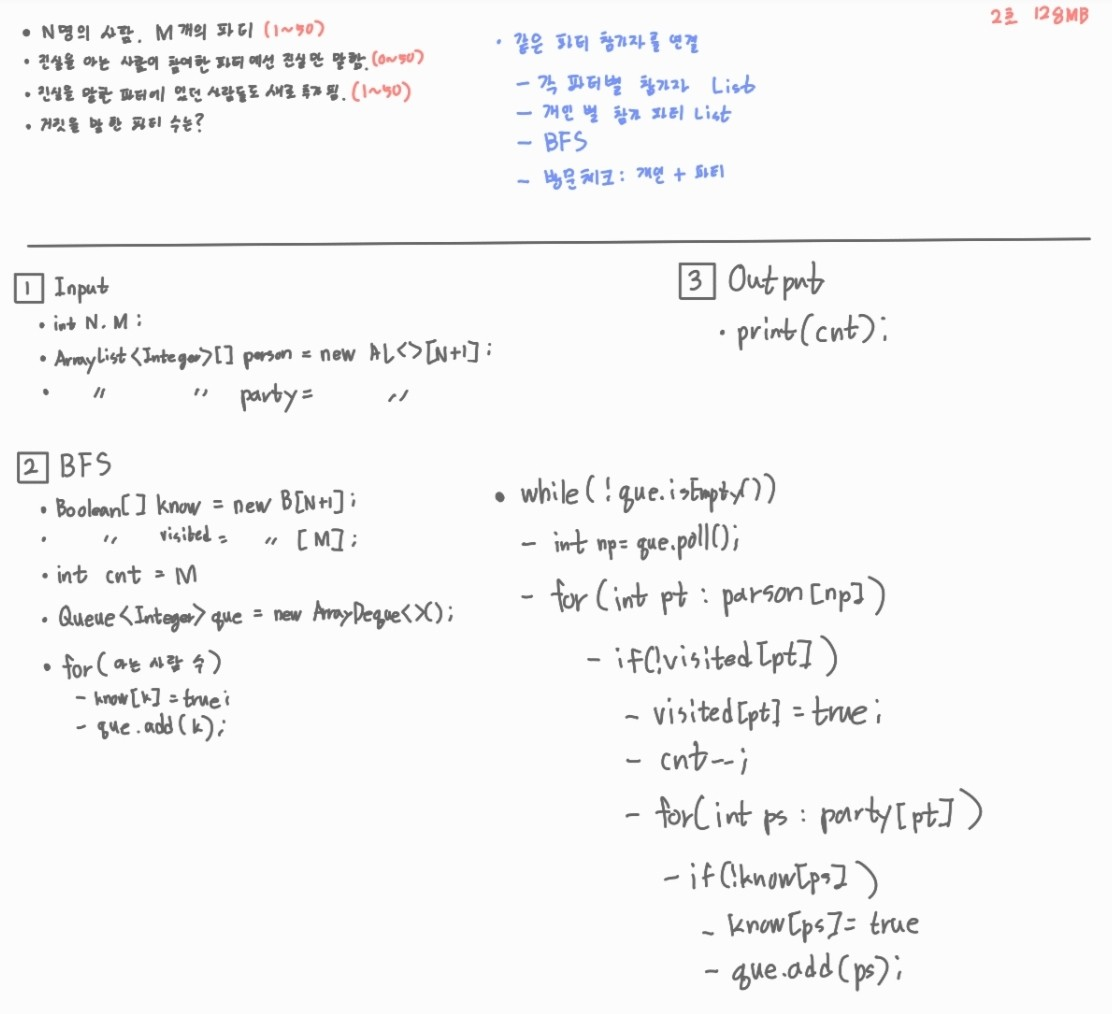 • N명의 사람. M개의 파티 (1~50)
• 진실을 아는 사람이 참여한 파티에선 진실만 말함. (0~50)
• 진실을 말한 파티에 있던 사람들도 새로 추가 됨. (1~50)
• 거짓을 말한 파티 수는?
2초 128MB
• 같은 파티 참가자를 연결
- 각 파티별 참가자 List
- 개인 별 참가 파티 List
- BFS
- 방문체크: 개인 + 파티
1 Input
• int N. M;
• ArrayList<Integer>[] person = new AL<>[N+1];
• " " party = "
2 BFS
• Boolean[] know = new B[N+1];
• " visited = " [M];
• int cnt = M
• Queue<Integer> que = new ArrayDeque<>();
• for(아는 사람 수)
- know[k] = true;
- que.add(k);
3 Output
• print(cnt);
• while(!que.isEmpty())
- int np = que.poll();
- for(int pt : parson[np])
- if(!visited[pt])
- visited[pt] = true;
- cnt--;
- for(int ps : party[pt])
- if(!know[ps])
- know[ps] = true
- que.add(ps);